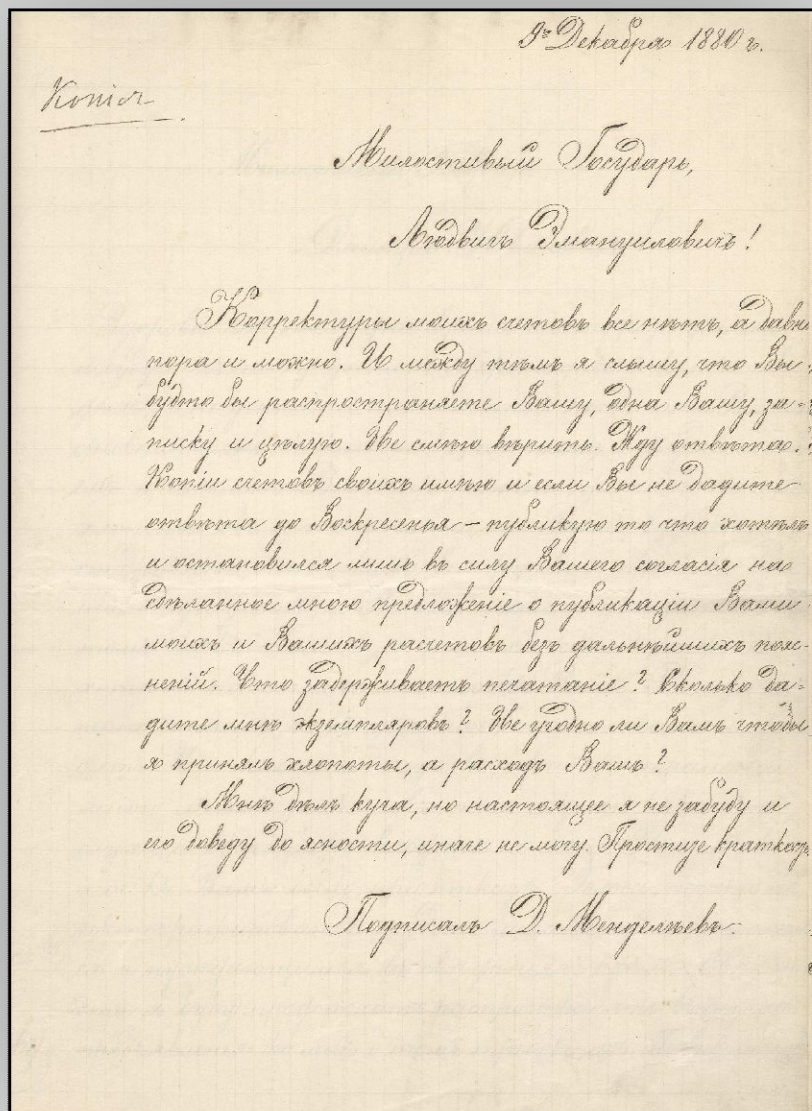 9го Декабря 1880 г.
Копія
Милостивый Государь,
Людвигъ Эмануиловичъ!
Корректуры моихъ счетовъ все нѣтъ, а давно
пора и можно. И между тѣмъ я слышу, что Вы
будто бы распространяете Вашу, одна Вашу, за-
писку и цѣлую. Не смѣю вѣрить. Жду отвѣта.
Копіи счетовъ своихъ имѣю и если Вы не дадите
отвѣта до Воскресенья – публикую то что хотѣлъ
и остановился лишь въ силу Вашего согласія на
сдѣланное мною предложеніе о публикаціи Вами
моихъ и Вашихъ расчетовъ безъ дальнѣйшихъ пояс-
неній. Что задерживаетъ печатаніе? Сколько да-
дите мнѣ экземпляровъ? Не угодно ли Вамъ чтобы
я принялъ хлопоты, а расходъ Вашъ?
Мнѣ дѣлъ куча, но настоящее я не забуду и
его доведу до ясности, иначе не могу. Простите краткость
Подписалъ Д. Менделѣевъ.